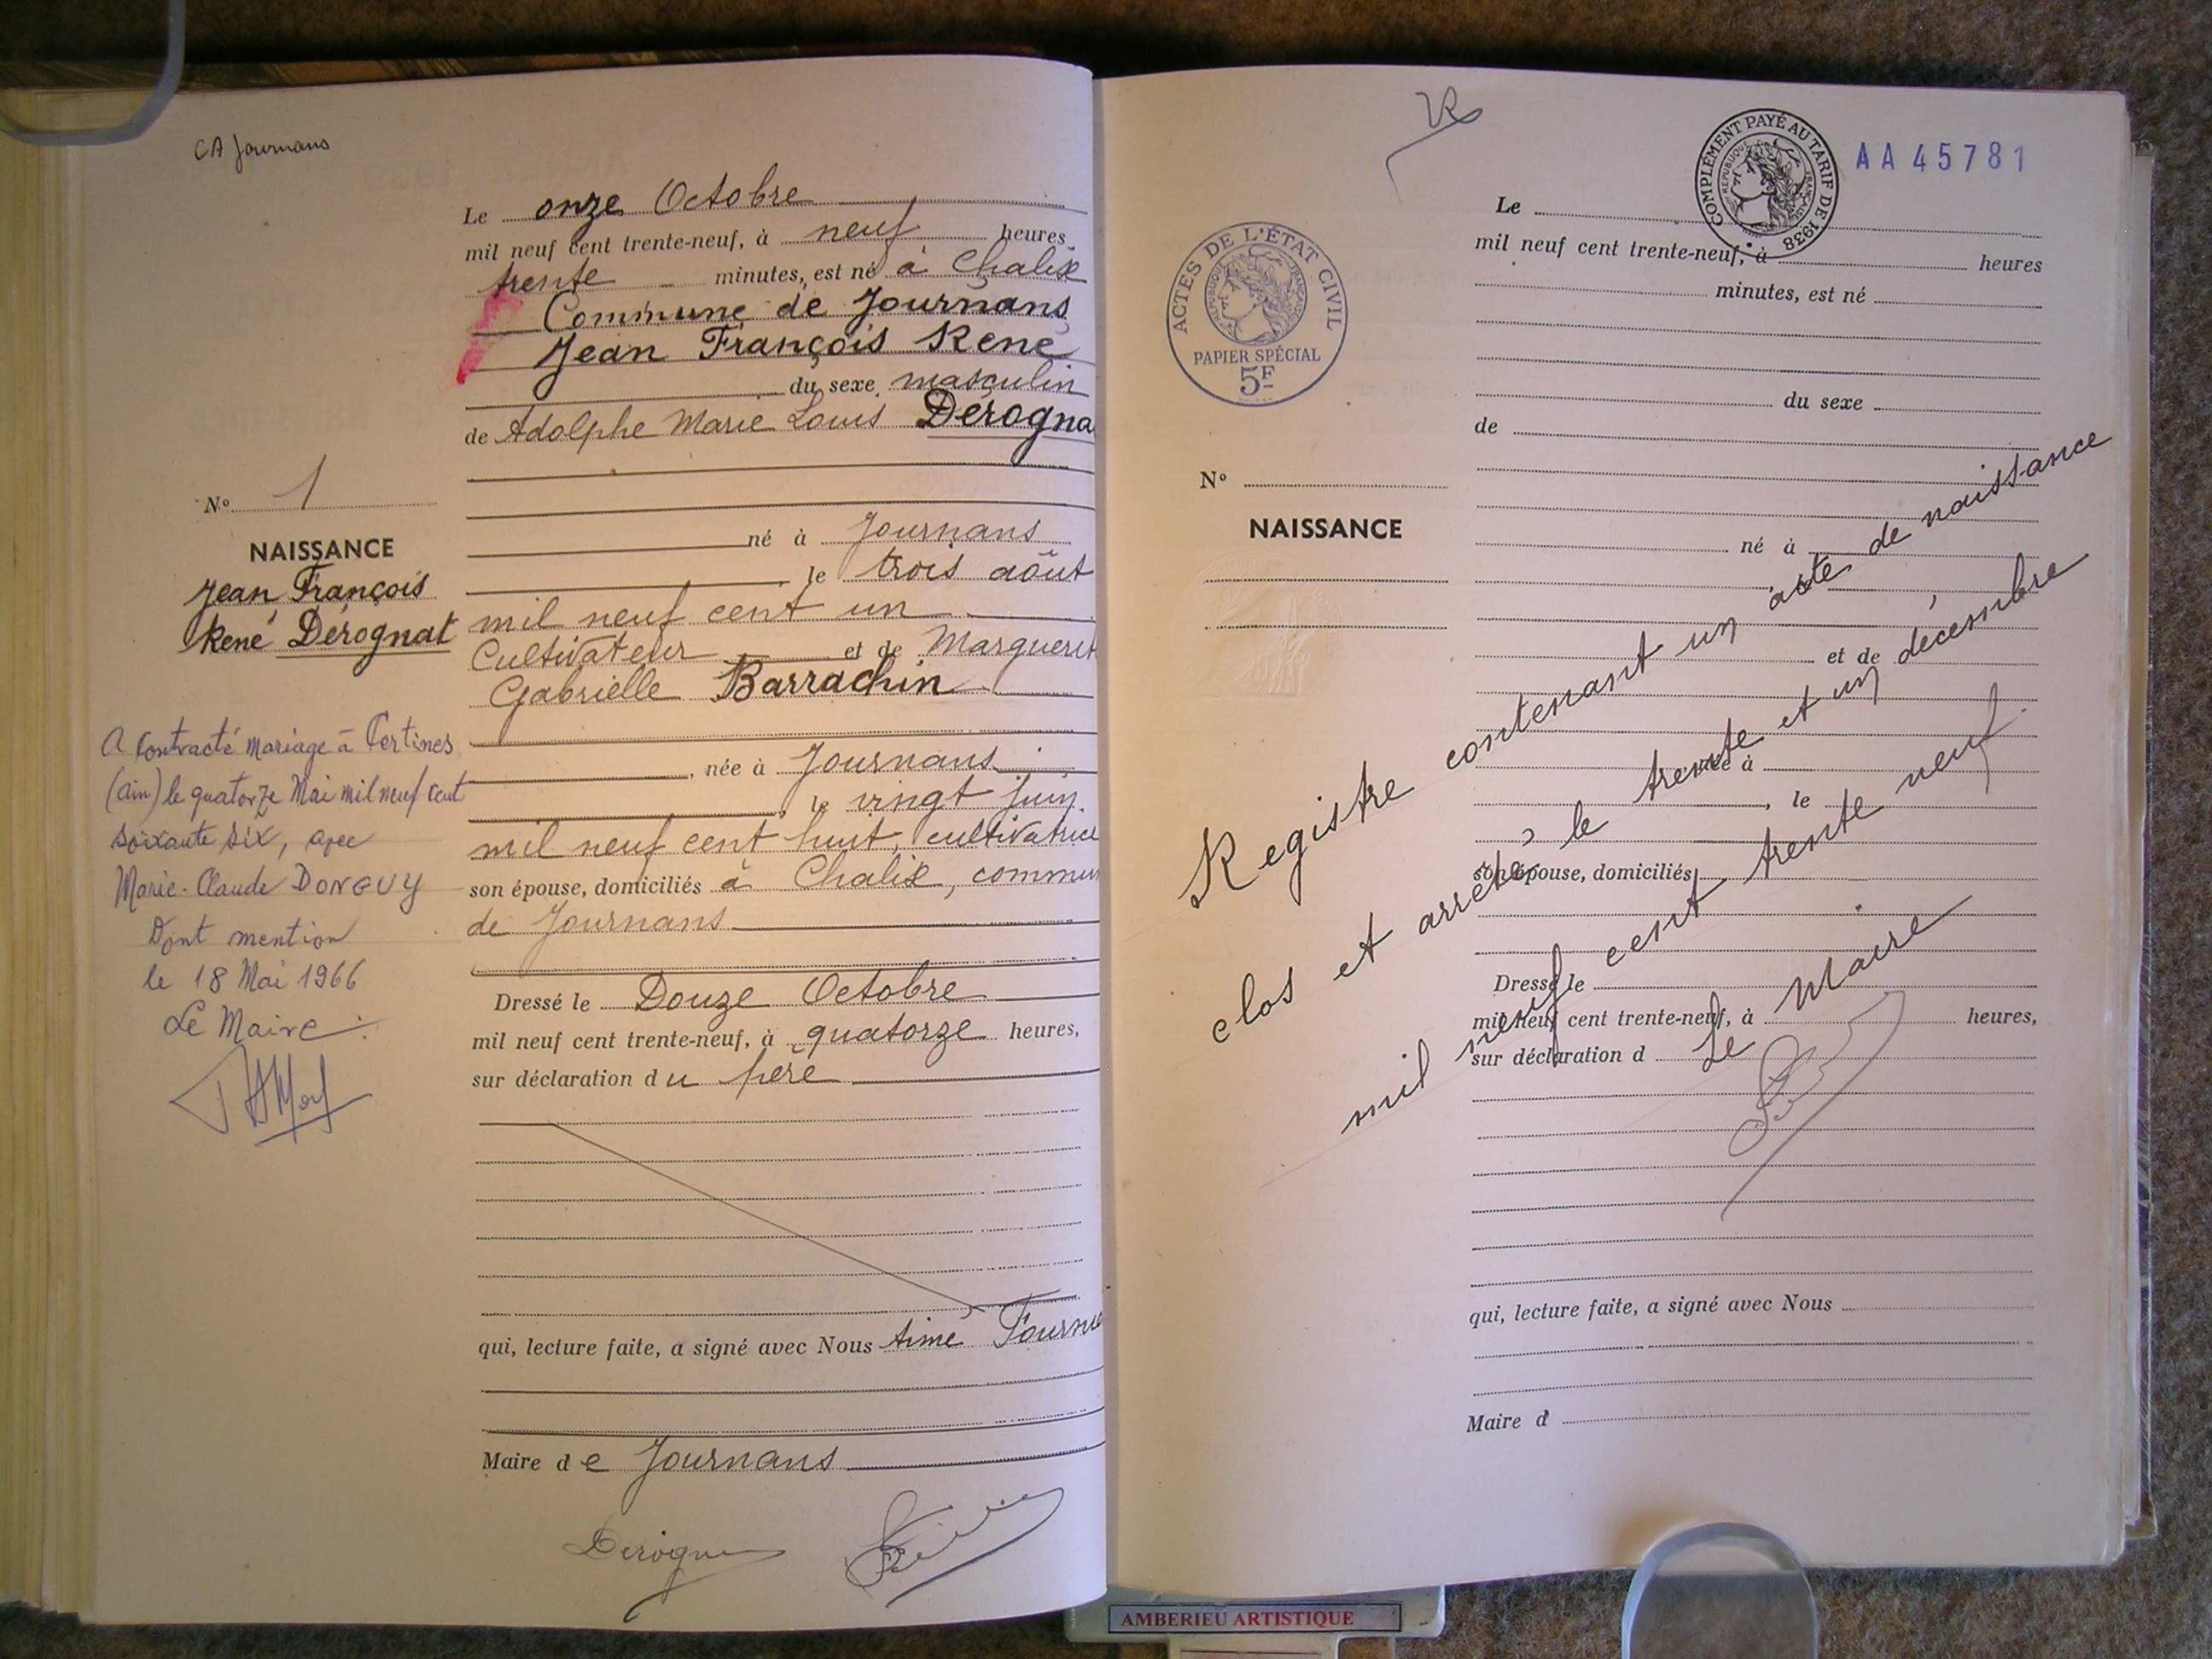 CA Journans
Le onze Octobre
mil neuf cent trente-neuf, à neuf heures
trente minutes, est né à Chalix
Commune de Journans
Jean François René
du sexe masculin
de Adolphe Marie Louis Dérogna
né à Journans
le trois août
mil neuf cent un
Cultivateur et de Marguerit
Gabrielle Barrachin
, née à Journans
, le vingt juin
mil neuf cent huit, cultivatrice
son épouse, domiciliés à Chalix, commun
de Journans
Dressé le Douze Octobre
mil neuf cent trente-neuf, à quatorze heures,
sur déclaration du père
qui, lecture faite, a signé avec Nous Aimé Fournie
Maire de Journans
Dérogna
No 1
NAISSANCE
Jean François
René Dérognat
A Contracté mariage à Certines
(Ain) le quatorze Mai mil neuf cent
soixante six, avec
Marie-Claude DONGUY
Dont mention
le 18 Mai 1966
Le Maire :
COMPLÉMENT PAYÉ AU TARIF DE 1938
RÉPUBLIQUE FRANÇAISE
AA 45781
ACTES DE L'ÉTAT CIVIL
RÉPUBLIQUE FRANÇAISE
PAPIER SPÉCIAL
5F
No
NAISSANCE
Le
mil neuf cent trente-neuf, à heures
minutes, est né
du sexe
de
né à
et de
née à
, le
son épouse, domiciliés
Dressé le
mil neuf cent trente-neuf, à heures,
sur déclaration d
qui, lecture faite, a signé avec Nous
Maire d
Registre contenant un acte de naissance
clos et arrêté le trente et un décembre
mil neuf cent trente neuf
Le Maire
AMBERIEU ARTISTIQUE